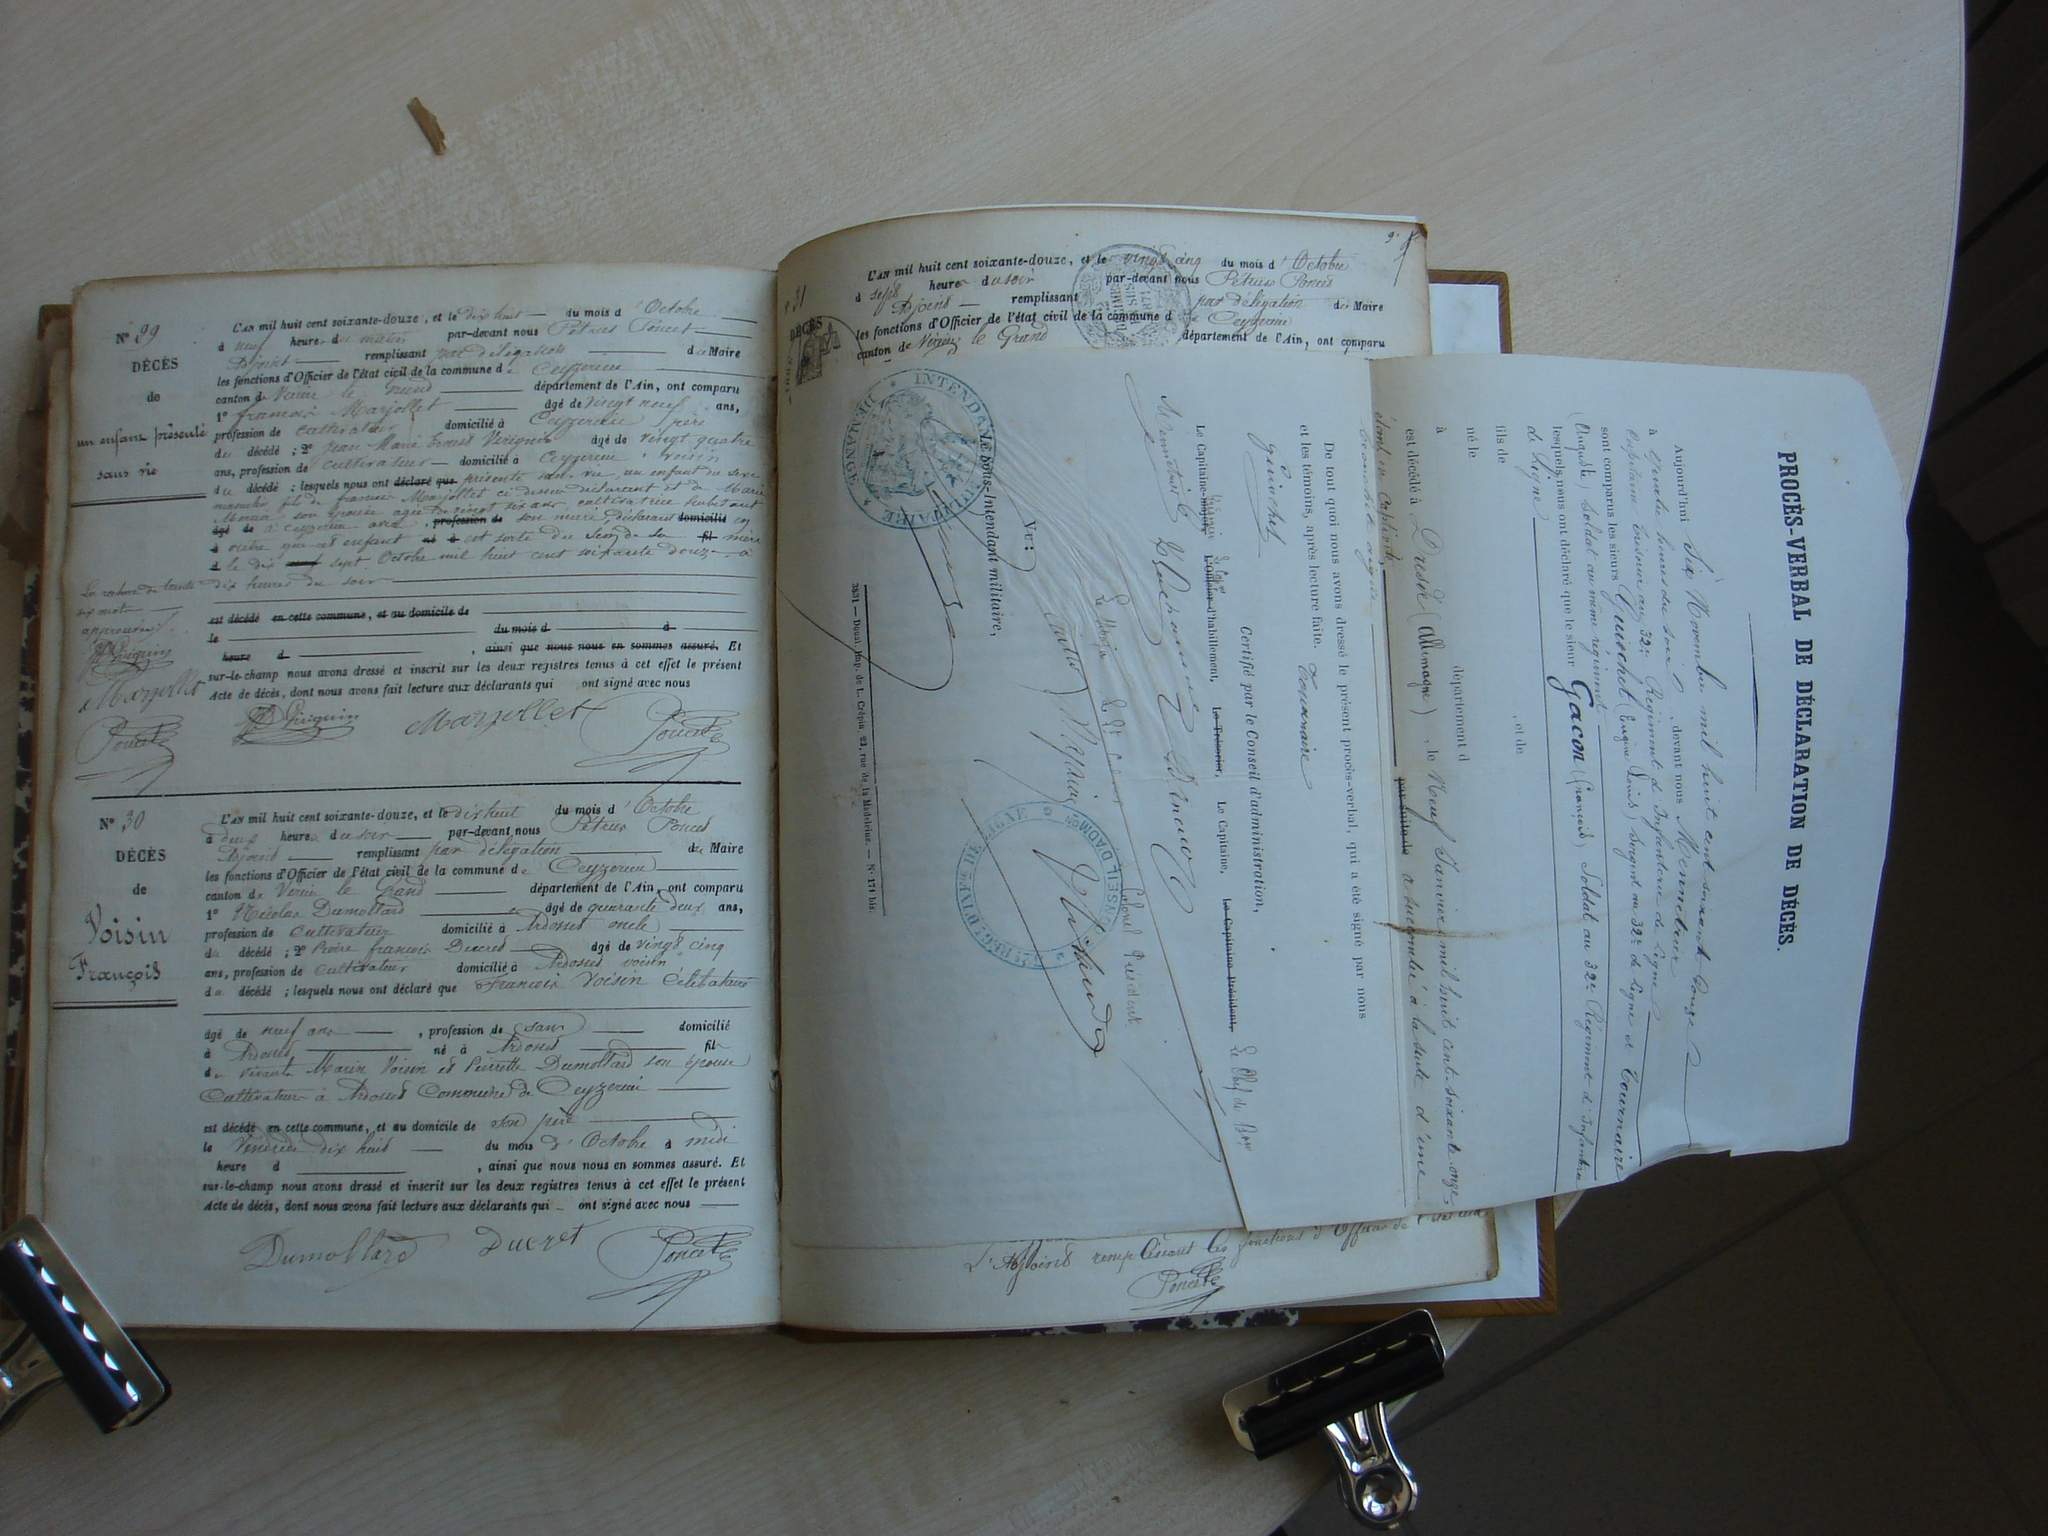 Nº 29
DÉCÈS
de
un enfant présenté
sans vie
L'AN mil huit cent soixante-douze, et le dix huit du mois d'Octobre
à neuf heure du matin par-devant nous Pétrus Poncet
Adjoint remplissant par délégation du Maire
les fonctions d'Officier de l'état civil de la commune de Ceyzeriu
canton de Virieu le Grand département de l'Ain, ont comparu
1º François Marjollet âgé de vingt neuf ans,
profession de cultivateur domicilié à Ceyzérieu père
du décédé ; 2º Jean Marie âgé de vingt quatre
ans, profession de cultivateur domicilié à Ceyzerieu voisin
du décédé ; lesquels nous ont déclaré que présenté sans vie un enfant du sexe
masculin fils de François Marjollet ci dessus déclarant et de Marie
son épouse agée de vingt six ans cultivatrice habitant
âgé de à Ceyzerieu avec , profession de son mari, déclarant domicilié en
à outre que cet enfant né à est sorti du sein de sa fil mère
le dix sept Octobre mil huit cent soixante douze à
dix heures du soir
approuvé
est décédé en cette commune, et au domicile de
le du mois d à
heure d , ainsi que nous nous en sommes assuré. Et
sur-le-champ nous avons dressé et inscrit sur les deux registres tenus à cet effet le présent
Acte de décès, dont nous avons fait lecture aux déclarants qui ont signé avec nous
Marjollet
Poncet
Marjollet
Poncet
Nº 30
DÉCÈS
de
Voisin
François
L'AN mil huit cent soixante-douze, et le dix huit du mois d'Octobre
à deux heure du soir par-devant nous Pétrus Poncet
Adjoint remplissant par délégation du Maire
les fonctions d'Officier de l'état civil de la commune de Ceyzerieu
canton de Virieu le Grand département de l'Ain, ont comparu
1º Nicolas Dumollard âgé de quarante deux ans,
profession de Cultivateur domicilié à Ardosset oncle
du décédé ; 2º François Ducret âgé de vingt cinq
ans, profession de Cultivateur domicilié à Ardosset voisin
du décédé ; lesquels nous ont déclaré que François Voisin Célibataire
âgé de neuf ans , profession de sans domicilié
à Ardosset né à Ardosset fils
de vivants Marin Voisin et Pierrette Dumollard son épouse
Cultivateurs à Ardosset Commune de Ceyzerieu
est décédé en cette commune, et au domicile de son père
le Vendredi dix huit du mois d'Octobre à midi
heure d , ainsi que nous nous en sommes assuré. Et
sur-le-champ nous avons dressé et inscrit sur les deux registres tenus à cet effet le présent
Acte de décès, dont nous avons fait lecture aux déclarants qui ont signé avec nous
Dumollard Ducret Poncet
31
DÉCÈS
L'AN mil huit cent soixante-douze, et le vingt cinq du mois d'Octobre
à sept heure du soir par-devant nous Pétrus Poncet
Adjoint remplissant par délégation du Maire
les fonctions d'Officier de l'état civil de la commune de Ceyzerieu
canton de Virieu le Grand département de l'Ain, ont comparu
PROCÈS-VERBAL DE DÉCLARATION DE DÉCÈS.
Aujourd'hui Six Novembre mil huit cent soixante onze
à heures du soir, devant nous Mennetrier
Capitaine Trésorier au 32e Régiment d'Infanterie de Ligne
sont comparus les sieurs Guinchet (Eugène Louis) Sergent au 32e de Ligne et Tournaire
(Auguste) Soldat au même régiment
lesquels nous ont déclaré que le sieur Gacon (François) Soldat au 32e Régiment d'Infanterie
de Ligne
fils de , et de
né le
à département d
est décédé à Dresde (Allemagne) , le Neuf Janvier mil huit cent soixante onze
étant en captivité par suite de a succombé à la suite d'une
De tout quoi nous avons dressé le présent procès-verbal, qui a été signé par nous
et les témoins, après lecture faite. Tournaire
Guinchet
Certifié par le Conseil d'administration,
Le Capitaine-major, L'Officier d'habillement, Le Trésorier, Le Capitaine, Le Capitaine Président,
Le Lt Colonel Président
VU :
Le Sous-Intendant militaire,
INTENDANCE MILITAIRE
32e RÉGt D'INFie DE LIGNE
CONSEIL D'ADMON
3831 — Douai, Imp. de L. Crépin, 23, rue de la Madeleine. — Nº 171 bis.
L'Adjoint remplissant les fonctions d'Officier de l'état civil
Poncet